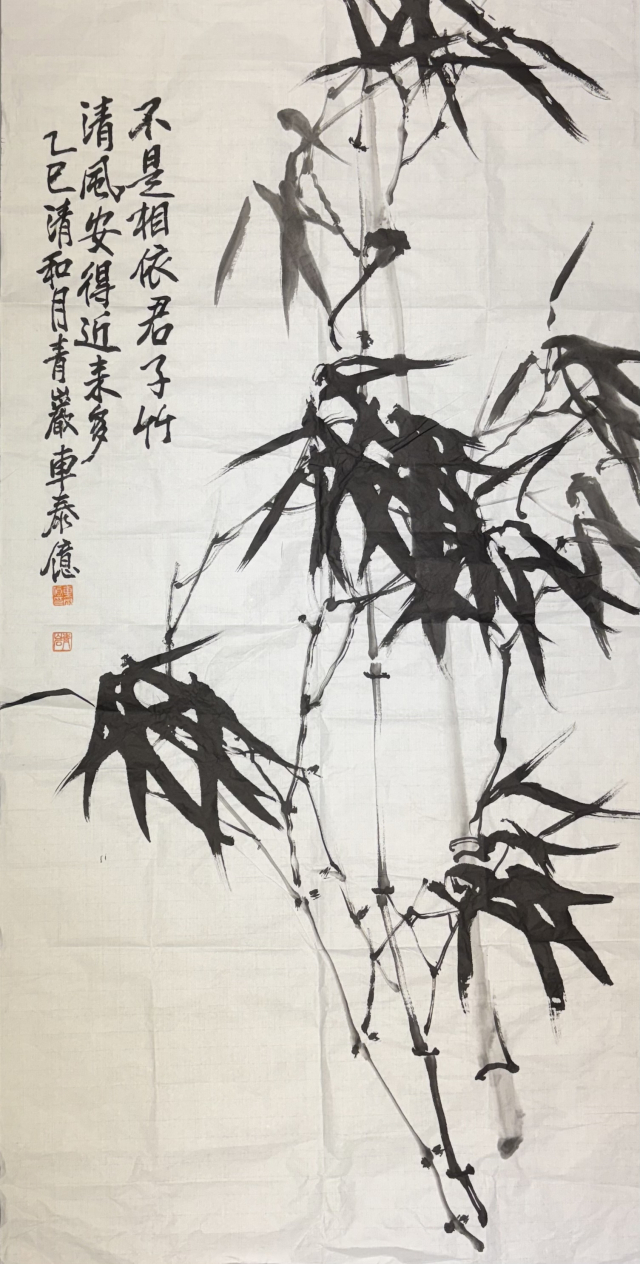 不是相依君子竹
清風安得近来多
乙巳清和月青巖車泰億